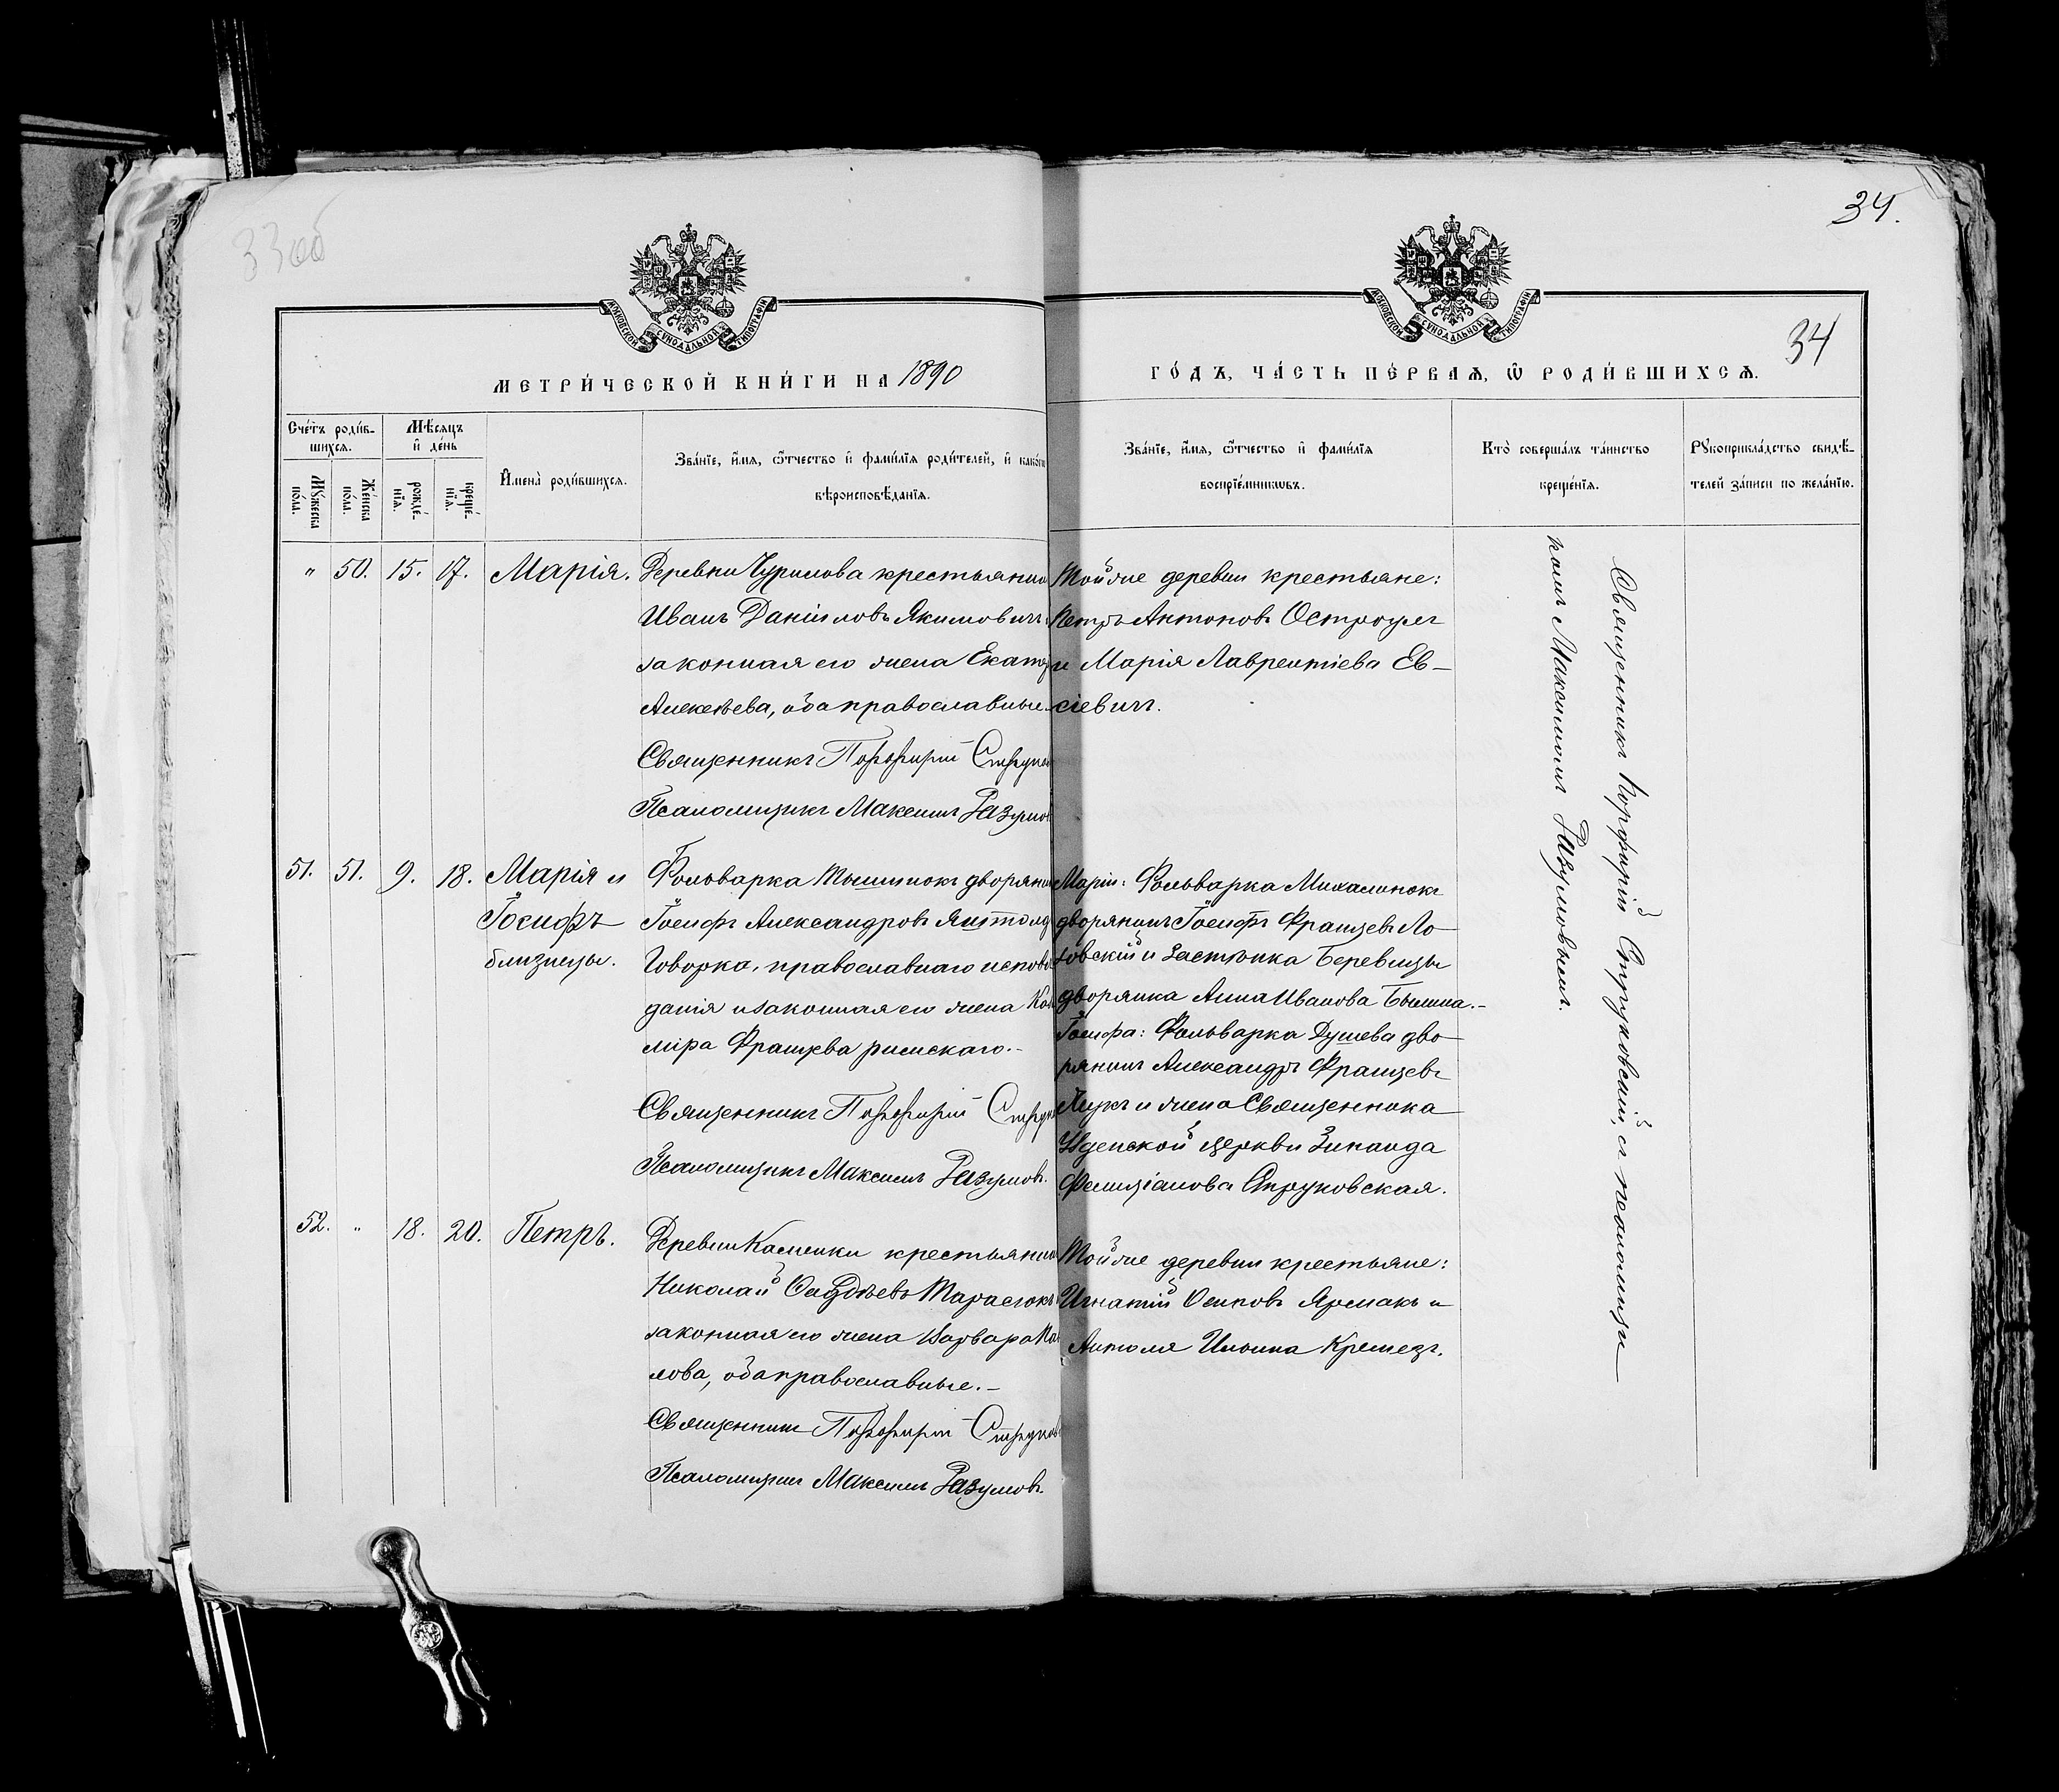 33 об
34.
МОСКОВСКОЙ СѴНОДАЛЬНОЙ ТИПОГРАФІИ
МОСКОВСКОЙ СѴНОДАЛЬНОЙ ТИПОГРАФІИ
34
МЕТРИ́ЧЕСКОЙ КНИ́ГИ НА 1890
ГО́ДЪ, ЧА́СТЬ ПЕ́РВАѦ, Ѿ РОДИ́ВШИХСѦ.
Сче́тъ роди́в-
шихся.
Мꙋ́жеска
по́ла.
Же́нска
по́ла.
Мѣ́сяцъ
и҆ де́нь
рожде́-
нїя.
креще́-
нїя.
И҆мена̀ роди́вшихся.
Зва́нїе, и҆́мя, ѻ҆́тчество и҆ фами́лїя роди́телей, и҆ како́гѡ
вѣроисповѣ́данїя.
Зва́нїе, и҆́мя, ѻ҆́тчество и҆ фами́лїя
воспрїе́мникѡвъ.
Кто̀ соверша́лъ та́инство
креще́нїя.
Рꙋкоприкла́дство свидѣ́-
телей за́писи по жела́нїю.
" 50. 15. 17. Марія.
Деревни Чурилова крестьянин
Иванъ Даніиловъ Якимовичъ
законная его жена Екатер
Алексѣева, оба православные.
Священникъ Порфирій Струков
Псаломщикъ Максимъ Разумов
Тойже деревни крестьяне:
Петръ Антоновъ Остроухъ
и Марія Лаврентіева Ев-
сіевичъ.
51. 51. 9. 18. Марія и
Іосифъ
близнецы.
Фольварка дворянин
Іосифъ Александровъ
Говорка, православнаго испове
данія и законная его жена Каз
міра Францева римскаго.-
Священникъ Порфирій Струк
Псаломщикъ Максимъ Разумовъ.
Маріи: Фольварка Михалинокъ
дворянинъ Іосифъ Францевъ
и застѣнка
дворянка Анна Иванова
Іосифа: Фольварка Душева дво-
рянинъ Александръ Францевъ
и жена Священника
Узденской церкви Зинаида
Фелиціанова Струковская.
52. " 18. 20. Петръ.
Деревни Каменки крестьянин
Николай Фаддѣевъ Тарасюкъ
законная его жена Варвара
лова, оба православные.-
Священникъ Порфирій Струков
Псаломщикъ Максимъ Разумовъ.
Тойже деревни крестьяне:
Игнатій Осиповъ Ярмакъ и
Антоля Ильина
Священникъ Порфирій Струковскій, съ псаломщи-
комъ Максимомъ Разумовымъ.